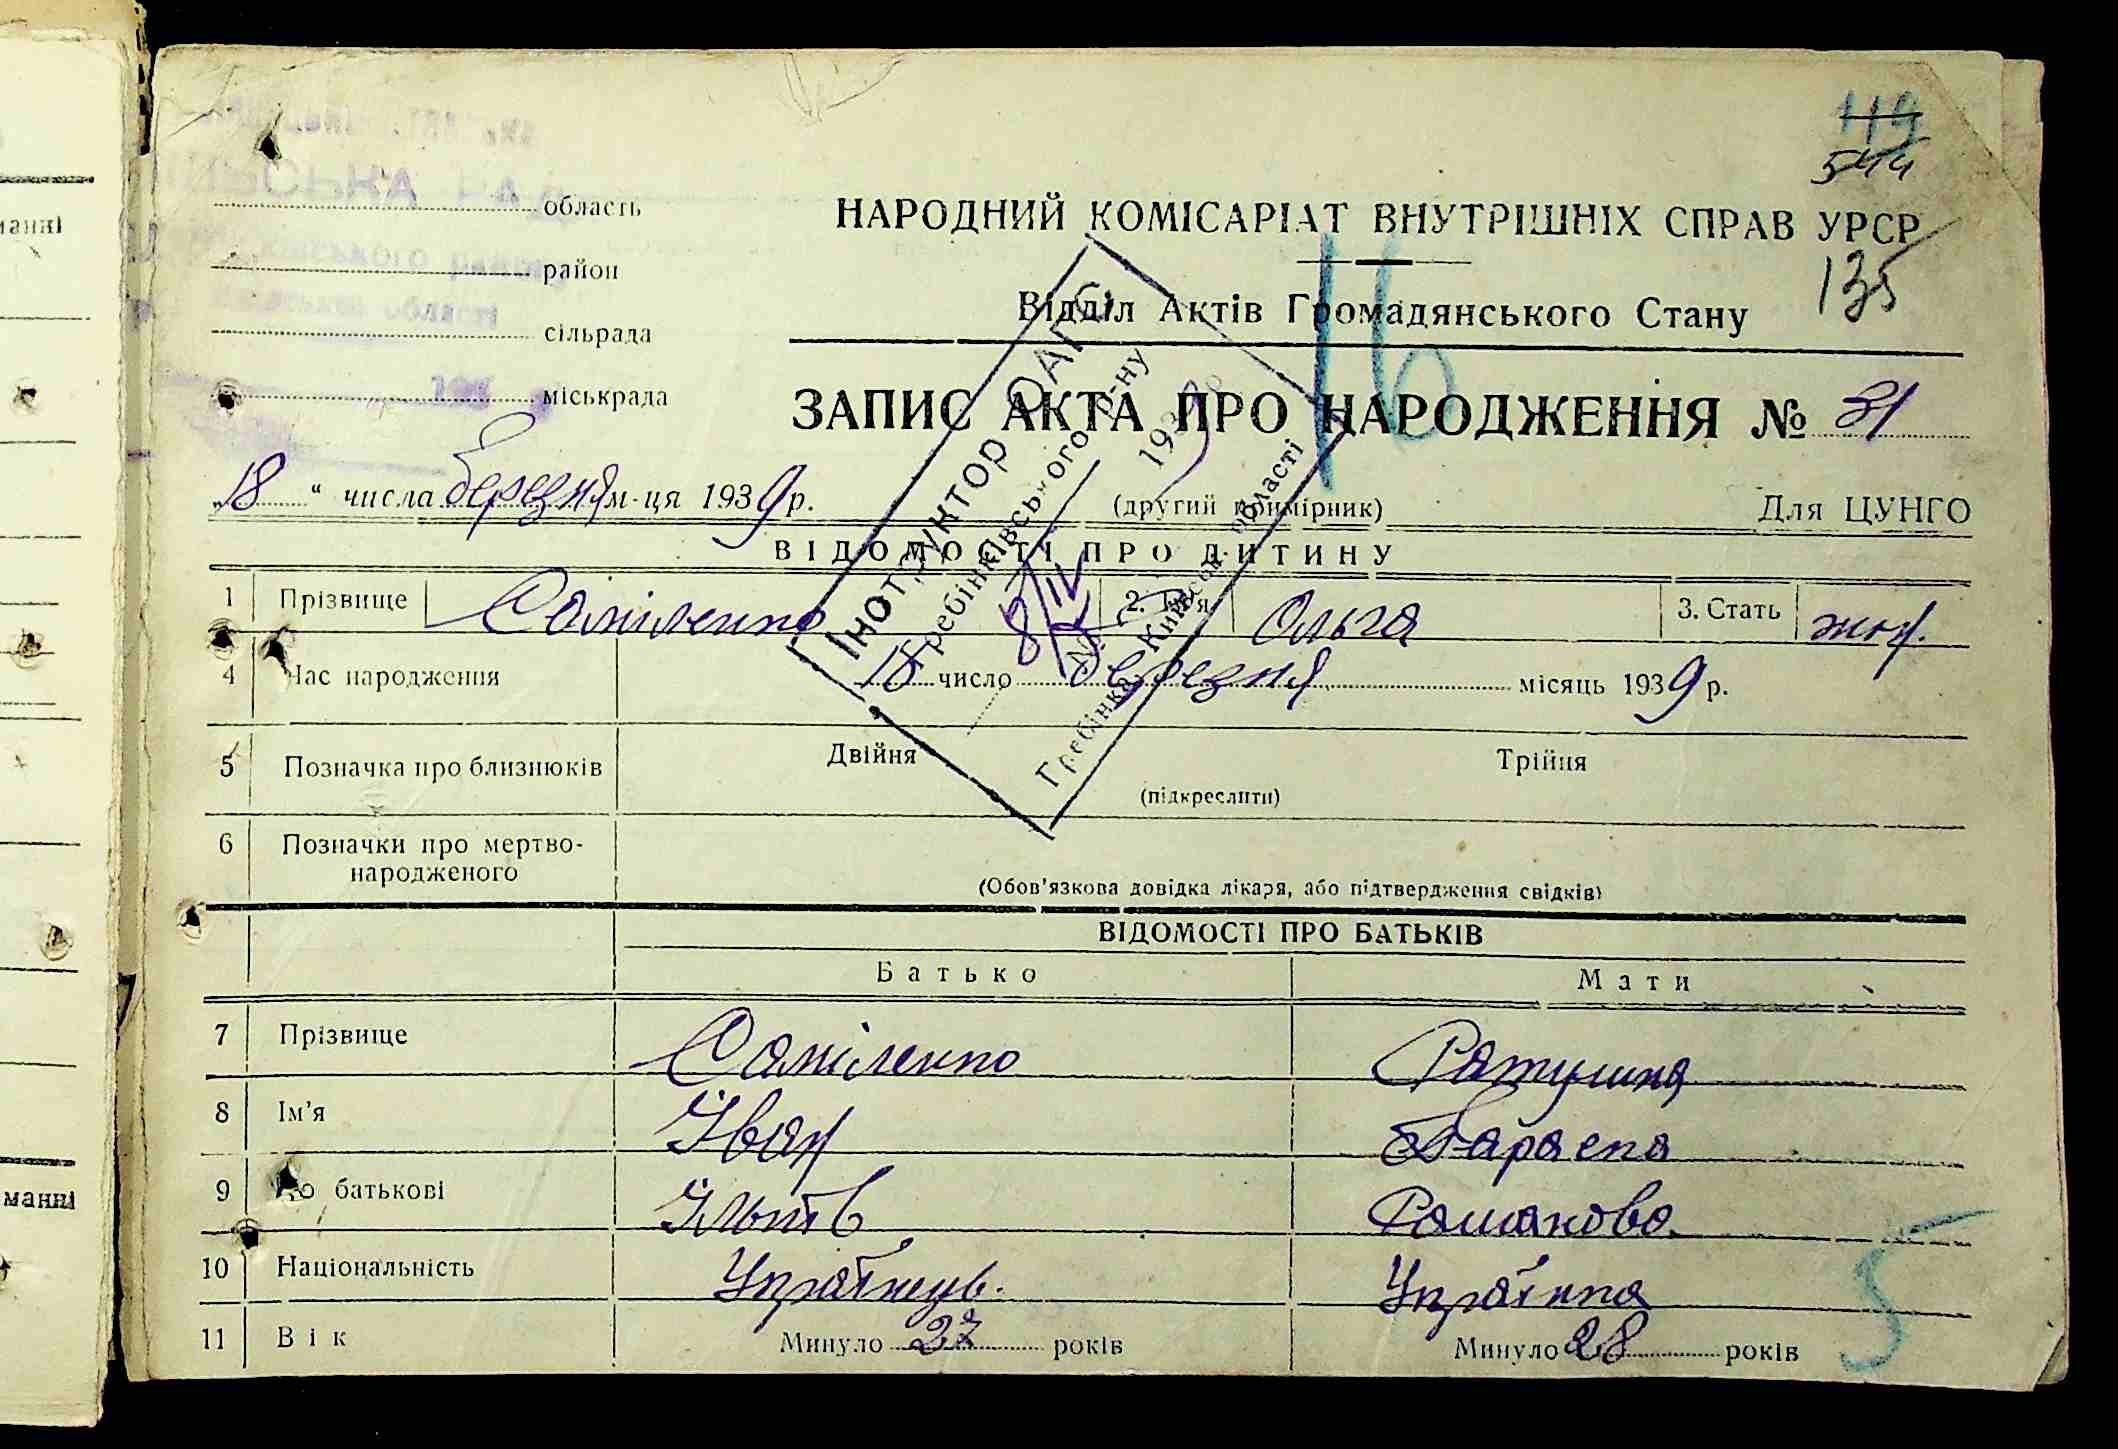 119
544
область
НАРОДНИЙ КОМІСАРІАТ ВНУТРІШНІХ СПРАВ УРСР
район
135
Відділ Актів Громадянського Стану
сільрада
міськрада
16
ЗАПИС АКТА ПРО НАРОДЖЕННЯ № 31
„18" числа березня м-ця 1939 р.
(другий примірник)
Для ЦУНГО
Інструктор ОАГС
Гребінківського р-ну
8/IV 193
Гребінка, Київськ. області
ВІДОМОСТІ ПРО ДИТИНУ
1 Прізвище Саміленко 2. Ім'я Ольга 3. Стать жін.
4 Час народження 18 число березня місяць 1939 р.
5 Позначка про близнюків Двійня Трійня
(підкреслити)
6 Позначки про мертво-
народженого
(Обов'язкова довідка лікаря, або підтвердження свідків)
ВІДОМОСТІ ПРО БАТЬКІВ
Батько Мати
7 Прізвище Саміленко Ратушна
8 Ім'я Іван Параска
9 По батькові Ільків Романовна
10 Національність Українець. Українка
11 Вік Минуло 27 років Минуло 28 років
5
манні
манні